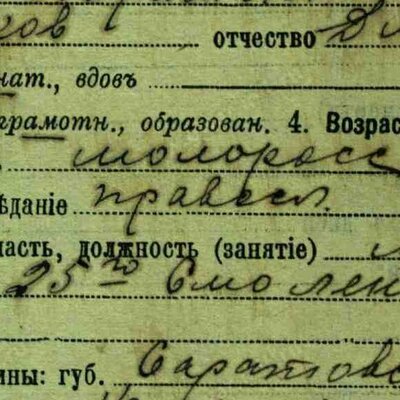 ков отчество Дм
нат., вдовъ
грамотн., образован. 4. Возрас
молоросс
ѣданіе правосл.
часть, должность (занятіе)
25го Смолен
ины: губ. Саратовс